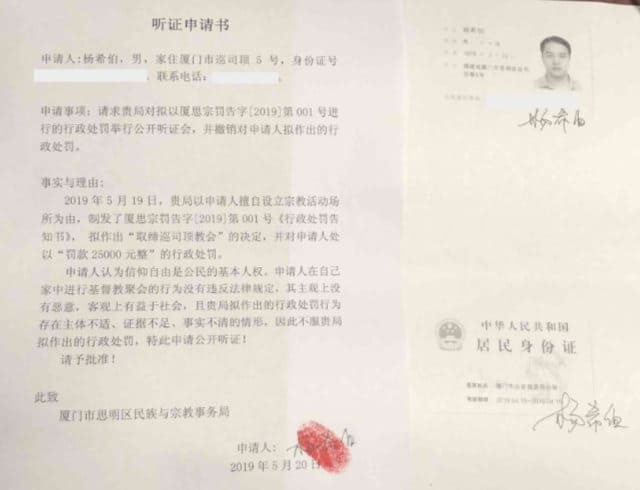 听证申请书
申请人：杨希伯，男，家住厦门市巡司顶 5 号，身份证号
，联系电话：
申请事项：请求贵局对拟以厦思宗罚告字[2019]第 001 号进
行的行政处罚举行公开听证会，并撤销对申请人拟作出的行政
处罚。
事实与理由：
2019 年 5 月 19 日，贵局以申请人擅自设立宗教活动场
所为由，制发了厦思宗罚告字[2019]第 001 号《行政处罚告
知书》，拟作出“取缔巡司顶教会”的决定，并对申请人处
以“罚款 25000 元整”的行政处罚。
申请人认为信仰自由是公民的基本人权。申请人在自己
家中进行基督教聚会的行为没有违反法律规定，其主观上没
有恶意，客观上有益于社会，且贵局拟作出的行政处罚行为
存在主体不适、证据不足、事实不清的情形，因此不服贵局
拟作出的行政处罚，特此申请公开听证！
请予批准！
此致
厦门市思明区民族与宗教事务局
申请人：
2019 年 5 月 20 日
杨希伯
中华人民共和国
居民身份证
杨希伯